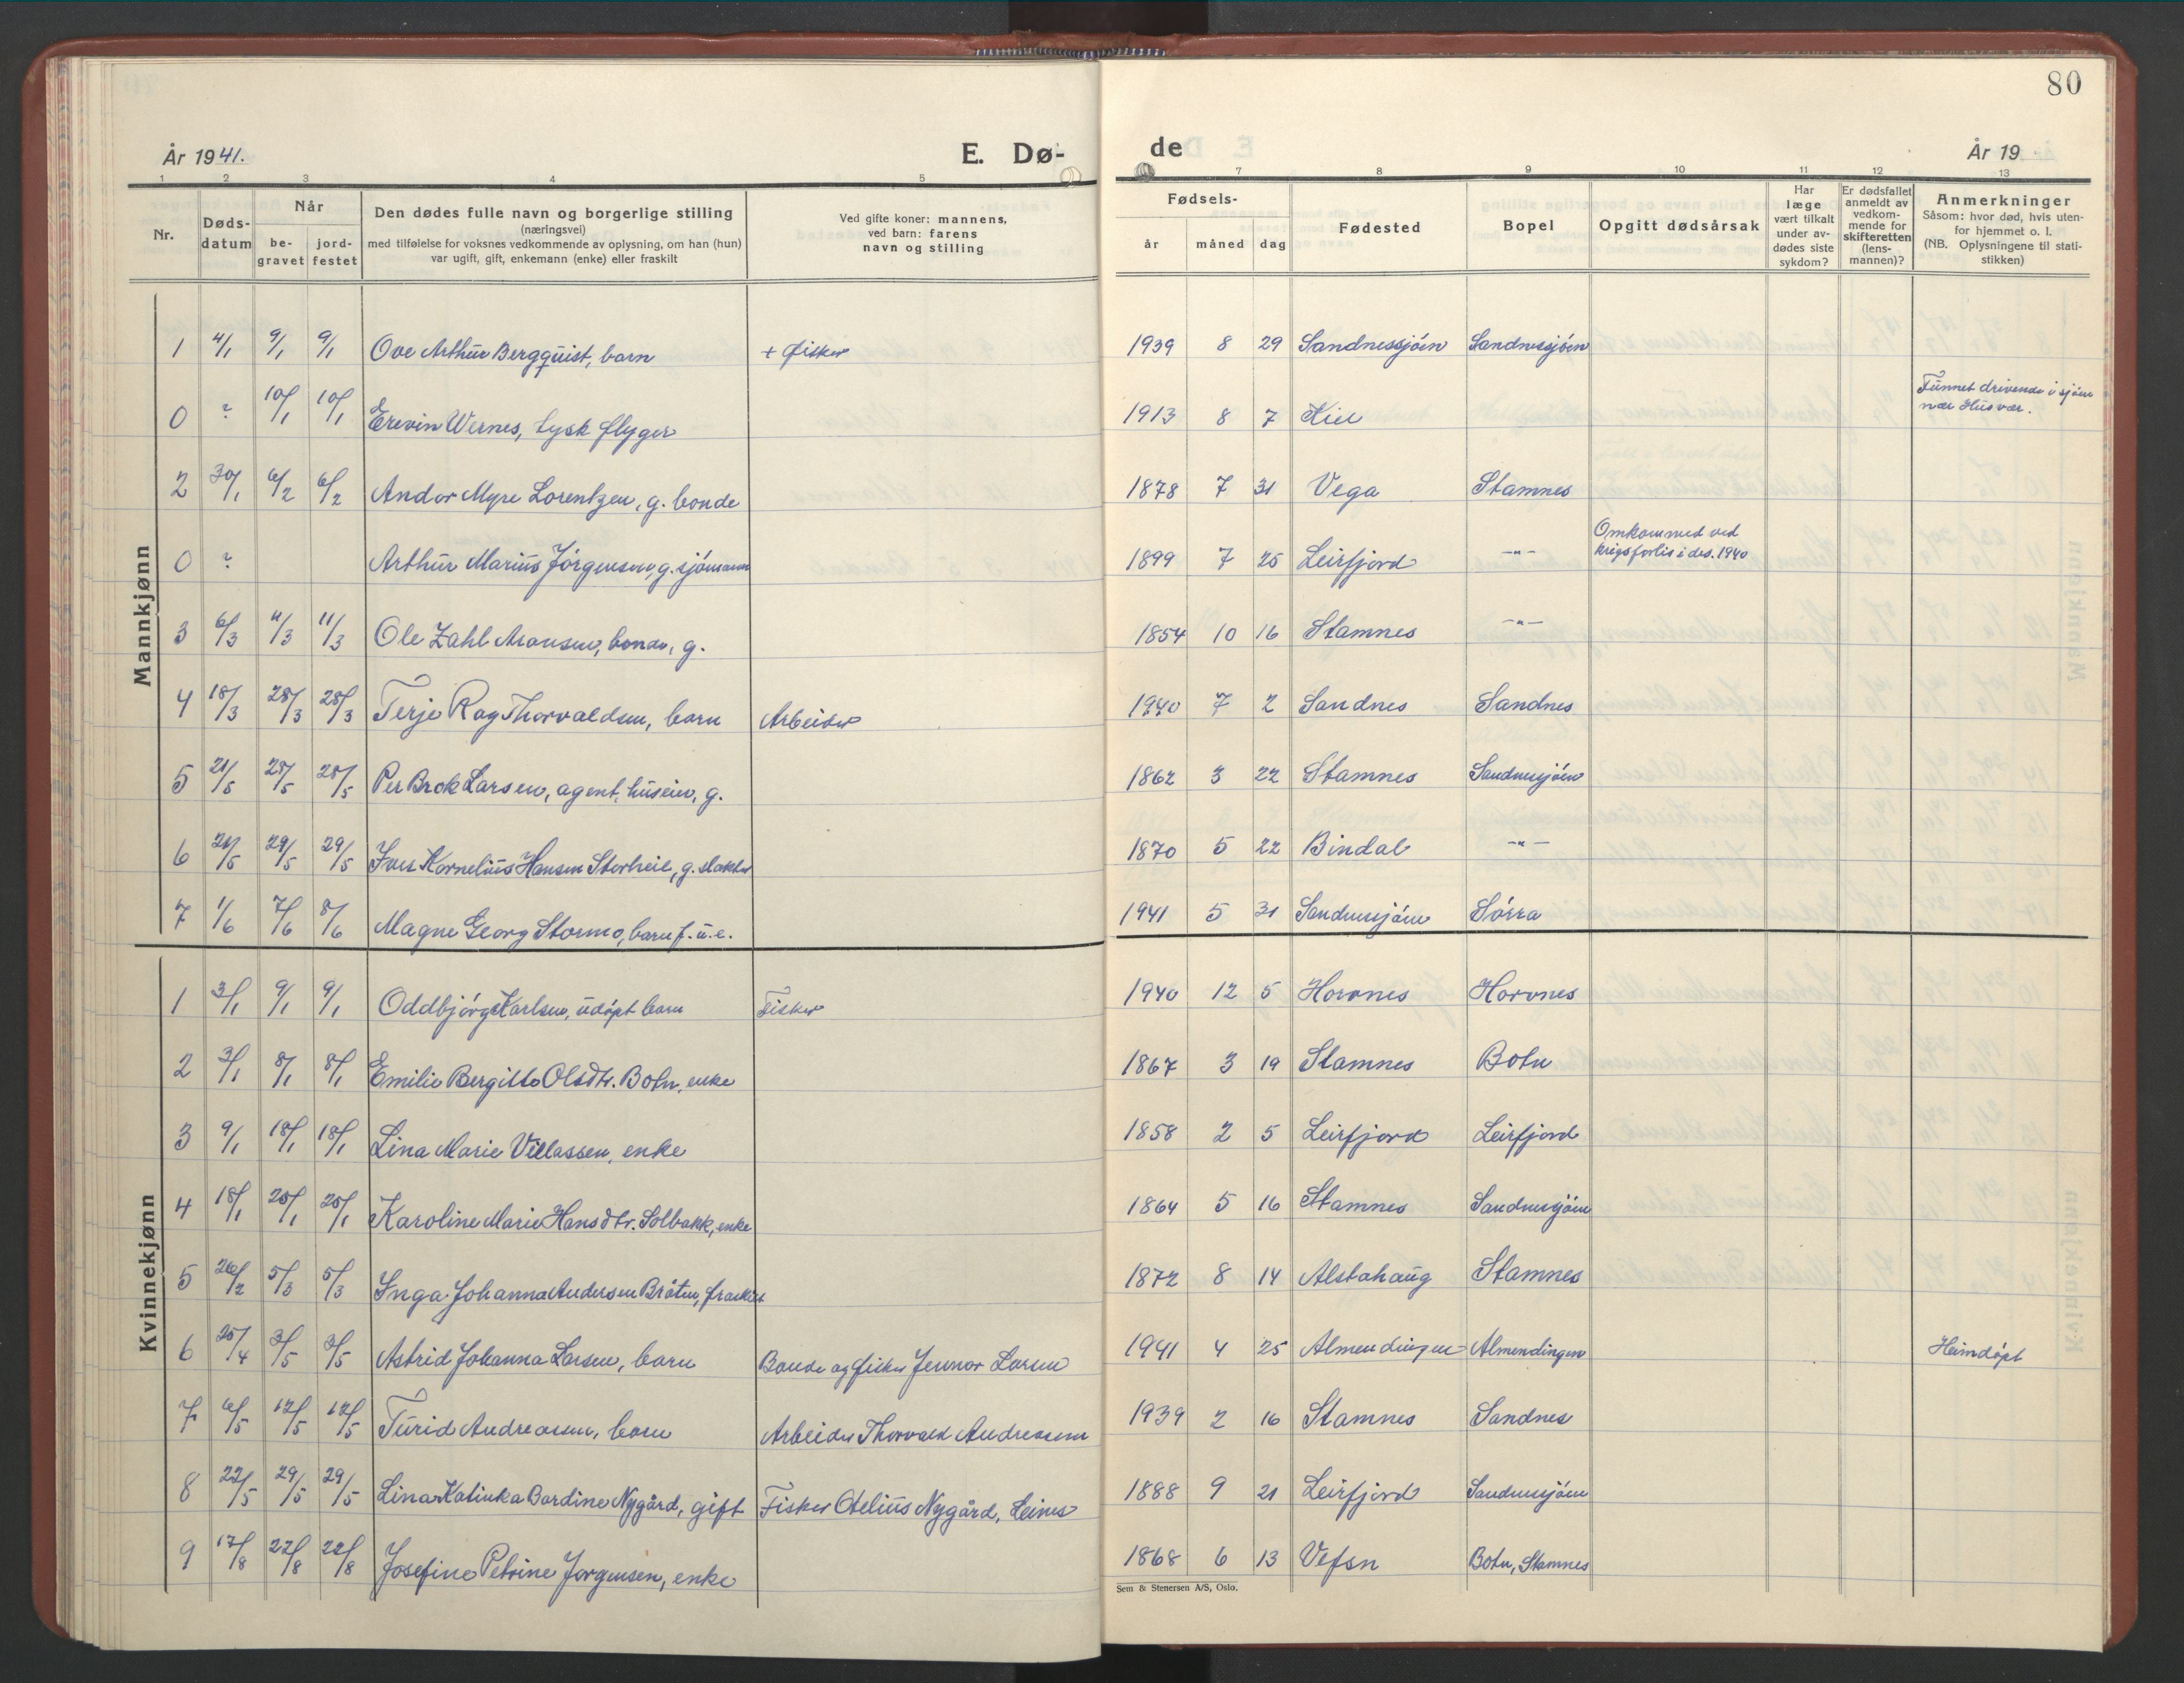 80
År 1941.
E. Dø-
de
År 19
1 2 3 4 5 7 8 9 10 11 12 13
Nr.
Døds-
datum
Når
be-
gravet
jord-
festet
Den dødes fulle navn og borgerlige stilling
(næringsvei)
med tilføielse for voksnes vedkommende av oplysning, om han (hun)
var ugift, gift, enkemann (enke) eller fraskilt
Ved gifte koner: mannens,
ved barn: farens
navn og stilling
Fødsels-
år måned dag
Fødested
Bopel
Opgitt dødsårsak
Har
læge
vært tilkalt
under av-
dødes siste
sykdom?
Er dødsfallet
anmeldt av
vedkom-
mende for
skifteretten
(lens-
mannen)?
Anmerkninger
Såsom: hvor død, hvis uten-
for hjemmet o. l.
(NB. Oplysningene til stati-
stikken)
Mannkjønn
1 4/1 9/1 9/1 Ove Arthur Bergquist, barn + fisker 1939 8 29 Sandnessjøen Sandnessjøen
0 ? 10/1 10/1 Erevin Wernes, tysk flyger 1913 8 7 Kiel Funnet drivende i sjøen
nær Husvær.
2 30/1 6/2 6/2 Andor Myre Lorentzen, g. bonde 1878 7 31 Vega Stamnes
0 ? Arthur Marius Jörgensen, g. sjömann 1899 7 25 Leirfjord -"- Omkommed ved
krigsforlis i des. 1940
3 6/3 11/3 11/3 Ole Zahl Aronsen, bonde, g. 1854 10 16 Stamnes -"-
4 18/3 28/3 28/3 Terje Roy Thorvaldsen, barn Arbeider 1940 7 2 Sandnes Sandnes
5 21/5 28/5 28/5 Per Brok Larsen, agent, huseier, g. 1862 3 22 Stamnes Sandnessjøen
6 21/5 29/5 29/5 Iver Kornelius Hansen Storheil, g. slakter 1870 5 22 Bindal -"-
7 1/6 7/6 8/6 Magne Georg Stormo, barn f. u. e. 1941 5 31 Sandnessjøen Sörra
Kvinnekjønn
1 3/1 9/1 9/1 Oddbjörg Karlsen, udöpt barn Fisker 1940 12 5 Horvnes Horvnes
2 3/1 8/1 8/1 Emilie Bergitte Olsdtr. Botn, enke 1867 3 19 Stamnes Botn
3 9/1 18/1 18/1 Lina Marie Villassen, enke 1858 2 5 Leirfjord Leirfjord
4 18/1 25/1 25/1 Karoline Marie Hansdtr. Solbakk, enke 1864 5 16 Stamnes Sandnessjøen
5 26/2 5/3 5/3 Inga Johanna Andersen Bråten, fraskilt 1872 8 14 Alstahaug Stamnes
6 25/4 3/5 3/5 Astrid Johanna Larsen, barn Bonde og fisker Jennor Larsen 1941 4 25 Almendingen Almendingen Heimdöpt
7 6/5 12/5 12/5 Turid Andreassen, barn Arbeider Thorvald Andreassen 1939 2 16 Stamnes Sandnes
8 22/5 29/5 29/5 Lina Katinka Bardine Nygård, gift Fisker Otelius Nygård, Leines 1888 9 21 Leirfjord Sandnessjøen
9 17/8 22/8 22/8 Josefine Petrine Jorgensen, enke 1868 6 13 Vefsn Botn, Stamnes
Sem & Stenersen A/S, Oslo.